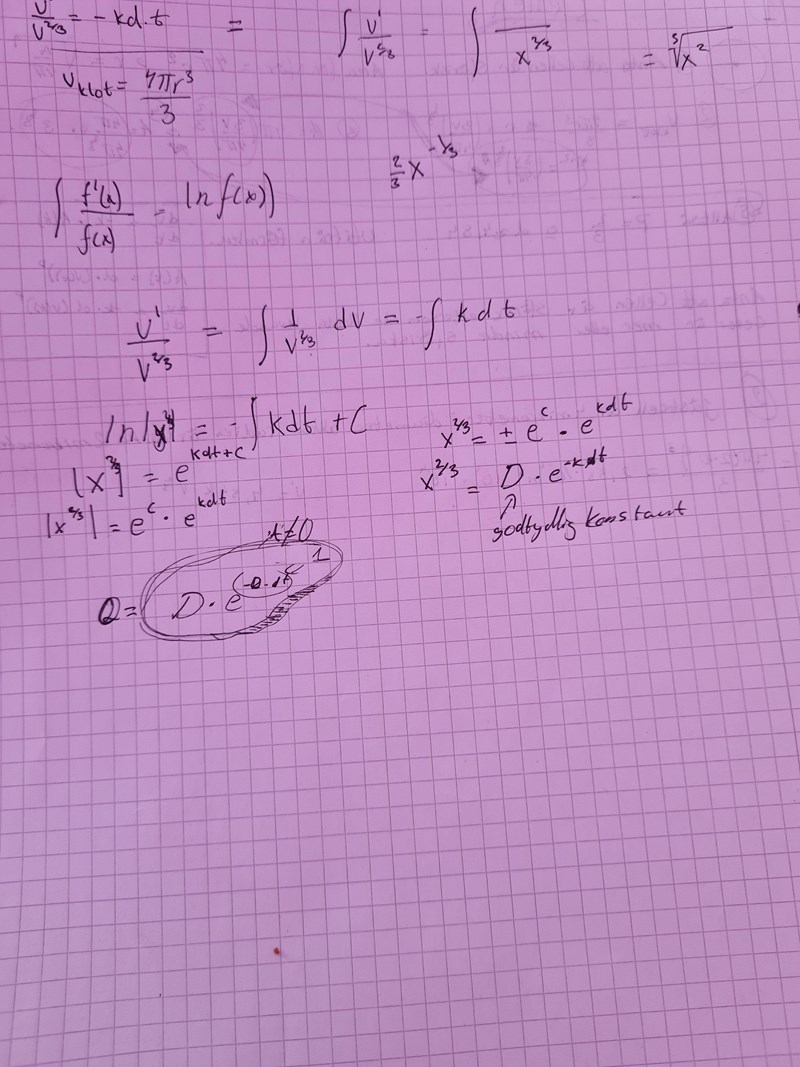 V'/V^{2/3} = -kd·t = ∫ V'/V^{2/3} = ∫ /x^{2/3} = ∛x²
V_{klot} = 4πr³/3
2/3 x^{-1/3}
∫ f'(x)/f(x) = ln f(x))
V'/V^{2/3} = ∫ 1/V^{2/3} dV = -∫ kdt
ln| | = -∫kdt + C
|x^{2/3}| = e^{kdt+C}
|x^{2/3}| = e^c · e^{kdt}
x^{2/3} = ± e^c · e^{kdt}
x^{2/3} = D · e^{-kdt}
↑
godtydlig konstant
≠0
Q = D · e
1